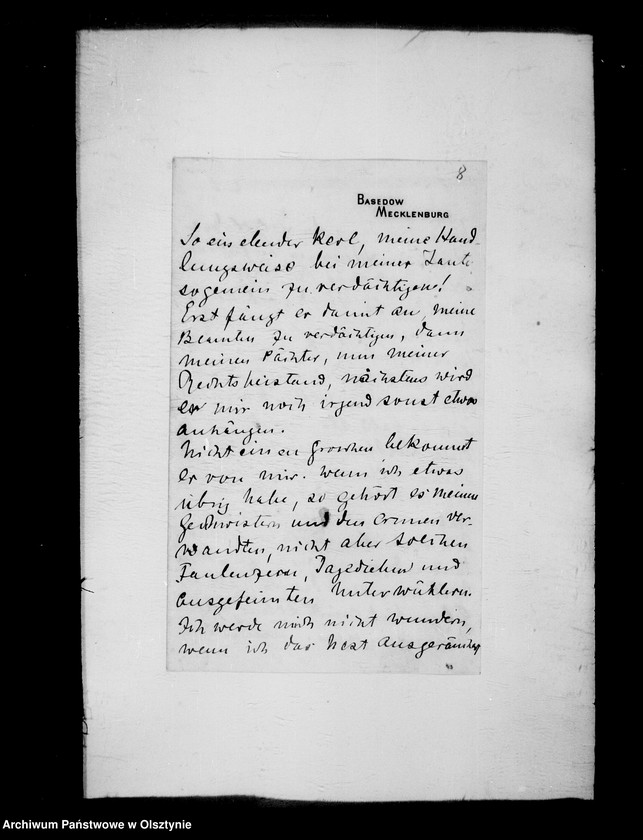 8
BASEDOW
MECKLENBURG
So ein elender Kerl, meine Hand-
lungsweise bei meiner Tante
so gemein zu verdächtigen!
Erst fängt er damit an, meine
Beamten zu verdächtigen, dann
meinen Pächter, nun meinen
Rechtsbeistand, nächstens wird
er mir noch irgend sonst etwas
anhängen.
Nicht einen Groschen bekommt
er von mir. Wenn ich etwas
übrig habe, so gehört es meinen
Geschwistern und den armen Ver-
wandten, nicht aber solchen
Faulenzern, Tagedieben und
ausgefeimten Unterwühlern.
Ich werde mich nicht wundern,
wenn ich das Nest ausgeräuchert
Archiwum Państwowe w Olsztynie